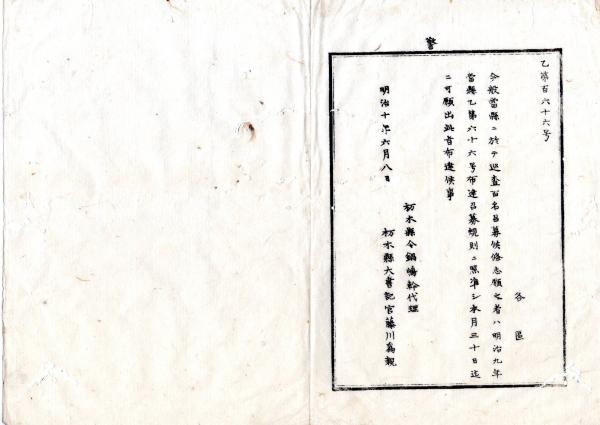 警
乙第百六十六号
各區
今般當縣ニ於テ巡査百名召募候條志願之者ハ明治九年
當縣乙第六十六号布達召募規則ニ照準シ本月三十日迄
ニ可願出此旨布達候事
明治十年六月八日
栃木縣令鍋嶋幹代理
栃木縣大書記官藤川為親